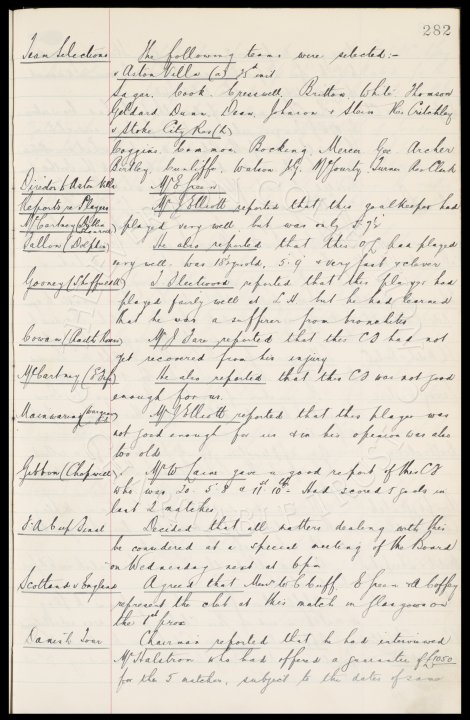 282
Team Selections The following teams were selected:-
v Aston Villa (a) 25th inst
Sagar, Cook, Cresswell, Britton, White, Thomson
Geldard, Dunn, Dean, Johnson & Stein Res Critchley
v Stoke City Res (h)
Coggins, Common, Bocking, Mercer, Gee, Archer
Birtley, Cunliffe, Watson J.G., McGourty, Turner Res Clark
Director to Aston Villa Mr E Green
Reports re Players Mr J Elliott reported that this goalkeeper had
McCartney played very well, but was only 5.9½
Fallon (Dolphin) He also reported that this O/L had played
very well. Was 18½ yrs old, 5.9 & very fast & clever
Gooney (Sheff Wed) J Fleetwood reported that this player had
played fairly well at L.H but he had learned
that he was a sufferer from bronchitis
Cowan (Raith Rovers) Mr J Fare reported that this CF had not
yet recovered from his injury
McCartney (E. Fife) He also reported that this CF was not good
enough for us.
Mainwaring Mr J Elliott reported that this player was
not good enough for us & in his opinion was also
too old
Gibbon (Chopwell) Mr W Cain gave a good report of this CF
who was 20. 5.8 & 11st 10lb. Had scored 5 goals in
last 2 matches
F.A Cup Final Decided that all matters dealing with this
be considered at a special meeting of the Board
on Wednesday next at 6pm
Scotland v England Agreed that Messrs W C Cuff, E Green & A Coffey
represent the club at this match in Glasgow on
the 1st prox
Danish Tour Chairman reported that he had interviewed
Mr Halstron who had offered a guarantee of £1050
for the 5 matches, subject to the dates of same